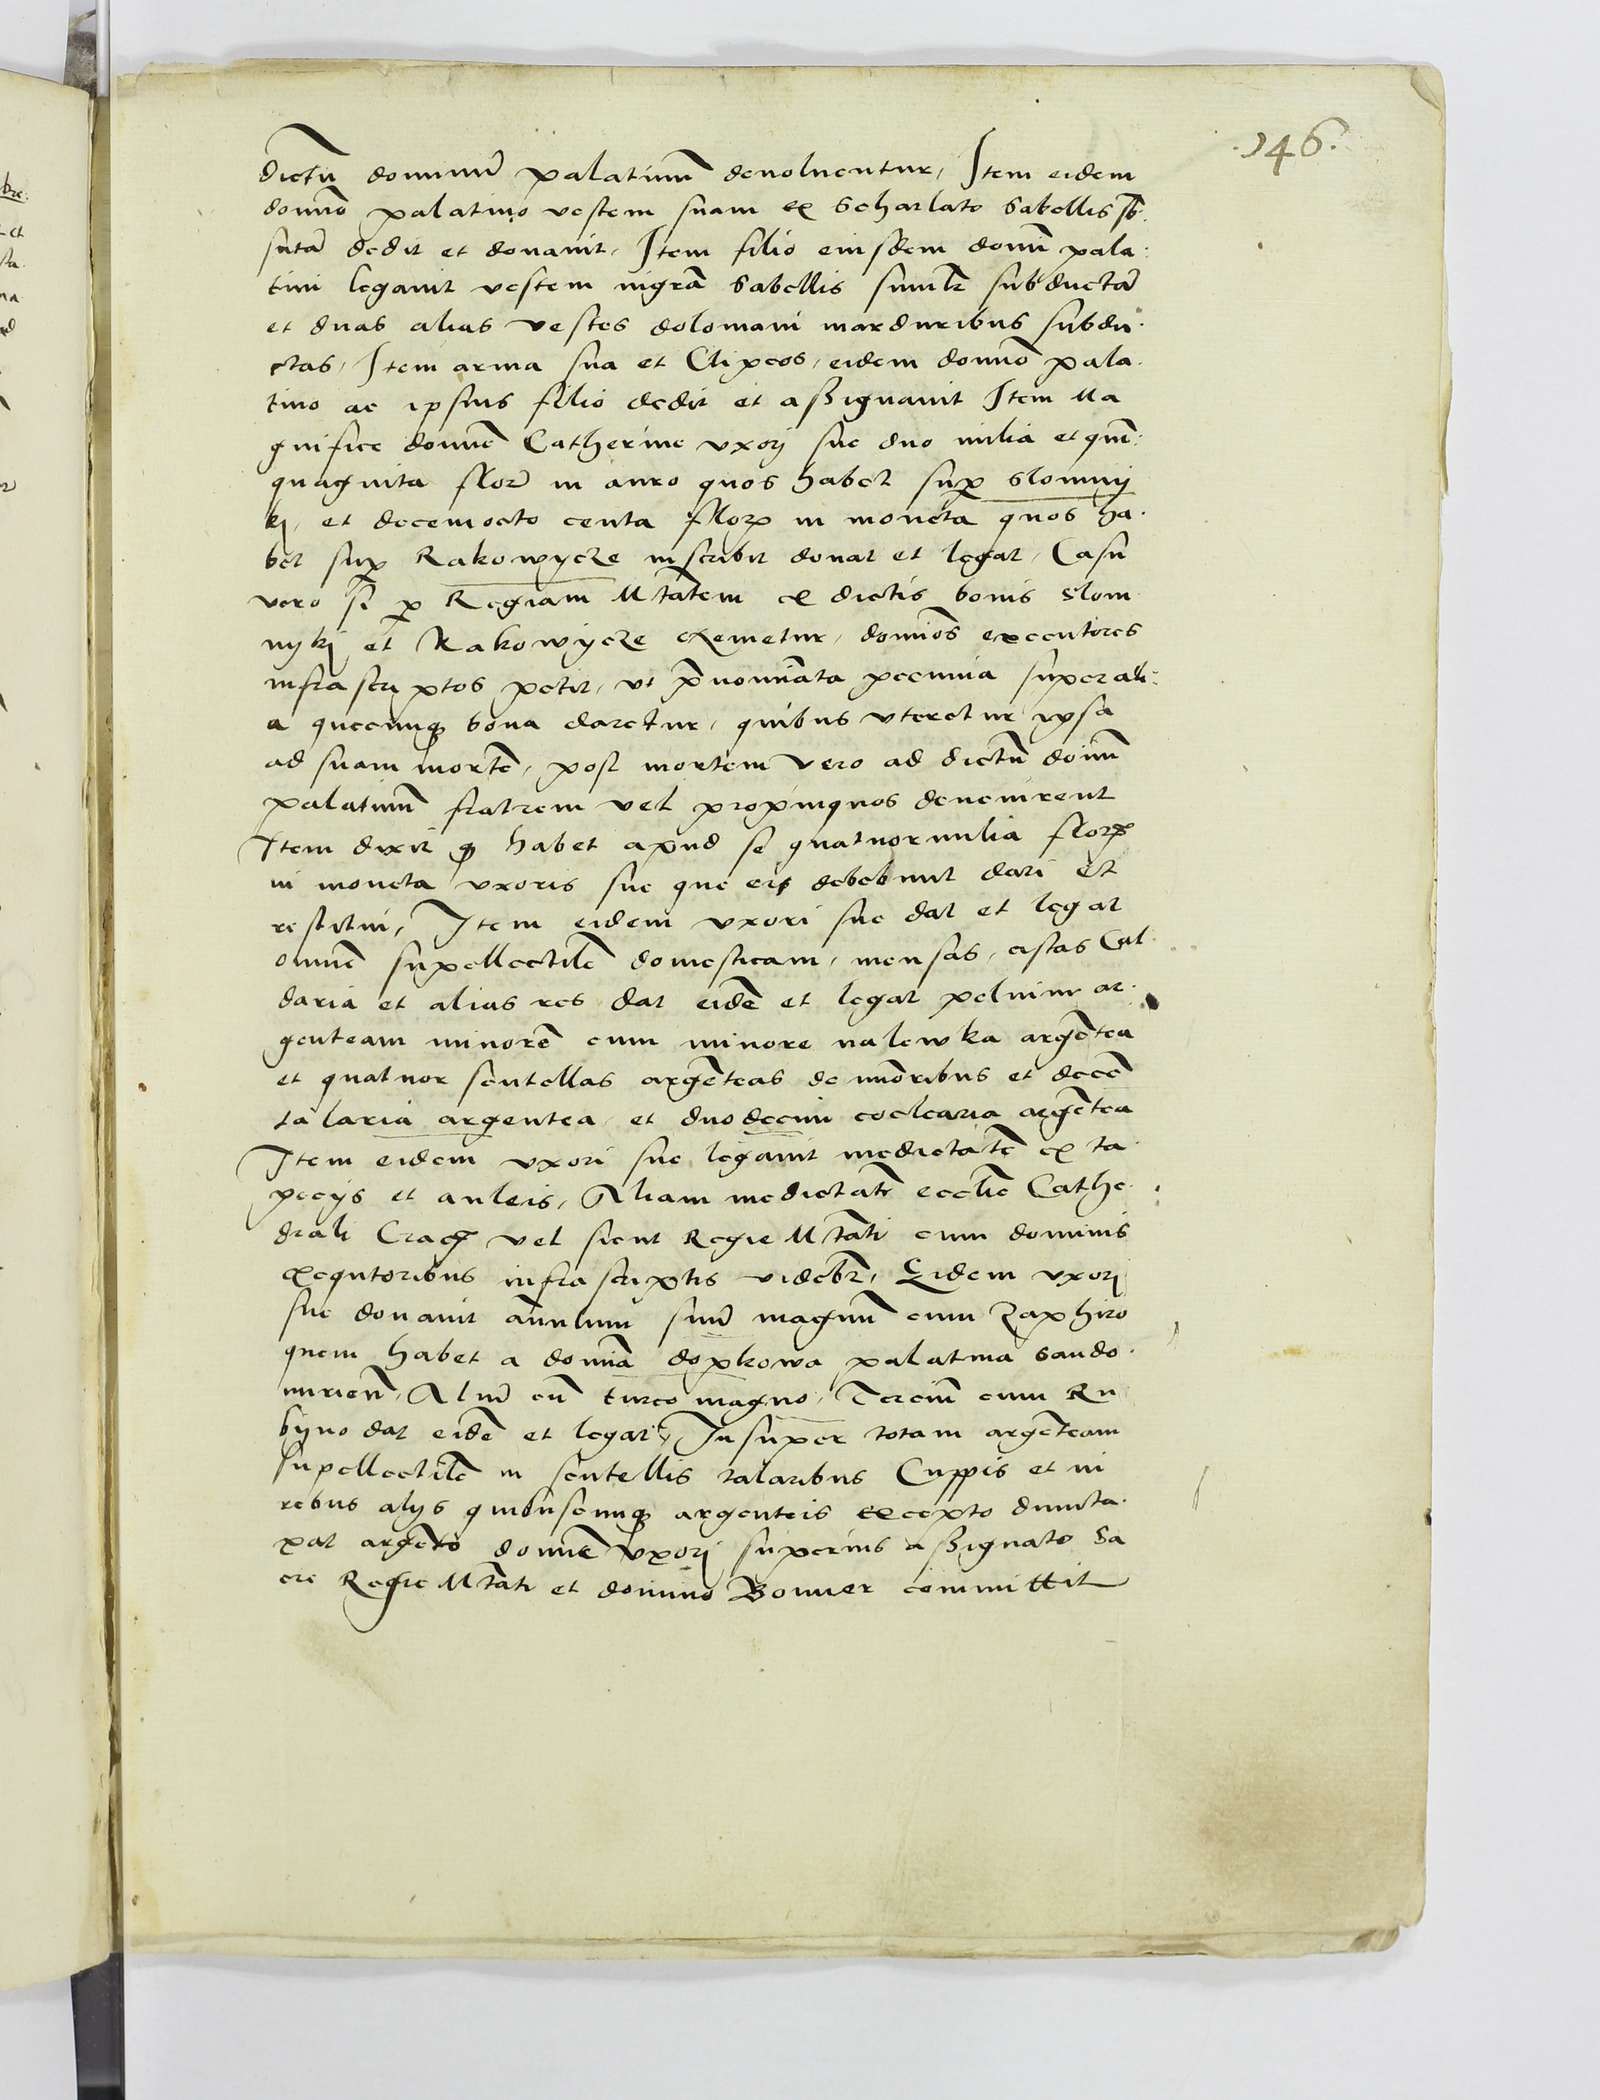 146.
dictũ dominũ palatinũ devolventur, Item eidem
domĩo palatino vestem suam ex scharlato sabellis sb
sutã dedit et donavit, Item filio eiusdem domĩ pala:
tini legavit vestem nigrã sabellis simlr subductã
et duas alias vestes dolomani marduribus subdu
ctas, Item arma sua et Clipeos, eidem domĩo pala
tino ac ipsius filio dedit et assignavit Item Ma
gnifice domĩe Catherine vxorj sue duo milia et quĩ:
quaginta flor in auro quos habet sup slomnij
kj, et decemocto centa flor in moneta quos ha
bet sup Rakowycze inscribit donat et legat, Casu
vero si p Regiam Mtatem ex dictis bonis Slom
nykj et Rakowycze exemetur, domĩos executores
infrascriptos petit, vt prenomĩata pecunia super ali:
a quecunq bona daretur, quibus vteretur ipsa
ad suam mortẽ, post mortem vero ad dictũ doĩm
palatinũ fratrem vel propinquos devenirent
Item dixit q habet apud se quatuor milia flor
in moneta vxoris sue que eis debebunt dari et
restitui, Item eidem vxori sue dat et legat
omnẽ supellectilẽ domesticam, mensas, cistas Cal
daria et alias res dat eidẽ et legat pelvim ar
genteam minorẽ cum minore nalewka argẽtea
et quatuor scutellas argẽteas de mĩoribus et decẽ
talaria argentea, et duodecim coclearia argẽtea
Item eidem vxori sue legavit medietatẽ ex ta
pecijs et auleis, Aliam medietatẽ ecclie Cathe
drali Crac vel sicut Regie Mtati cum dominis
exequtoribus infrascriptis videbr, Eidem vxorj
sue donavit annulum suũ magnũ cum Zaphiro
quem habet a domĩa dopkowa palatina Sando
mirieñ, Aliũ cũ turco magno, Terciũ cum Ru
byno dat eidẽ et legat, Insuper totam argẽteam
supellectilẽ in scutellis talaribus Cuppis et in
rebus alijs quibuscunq argenteis excepto dumta
xat argẽto domĩe vxorj superius assignato Sa
cre Regie Mtati et domino Bonner committit